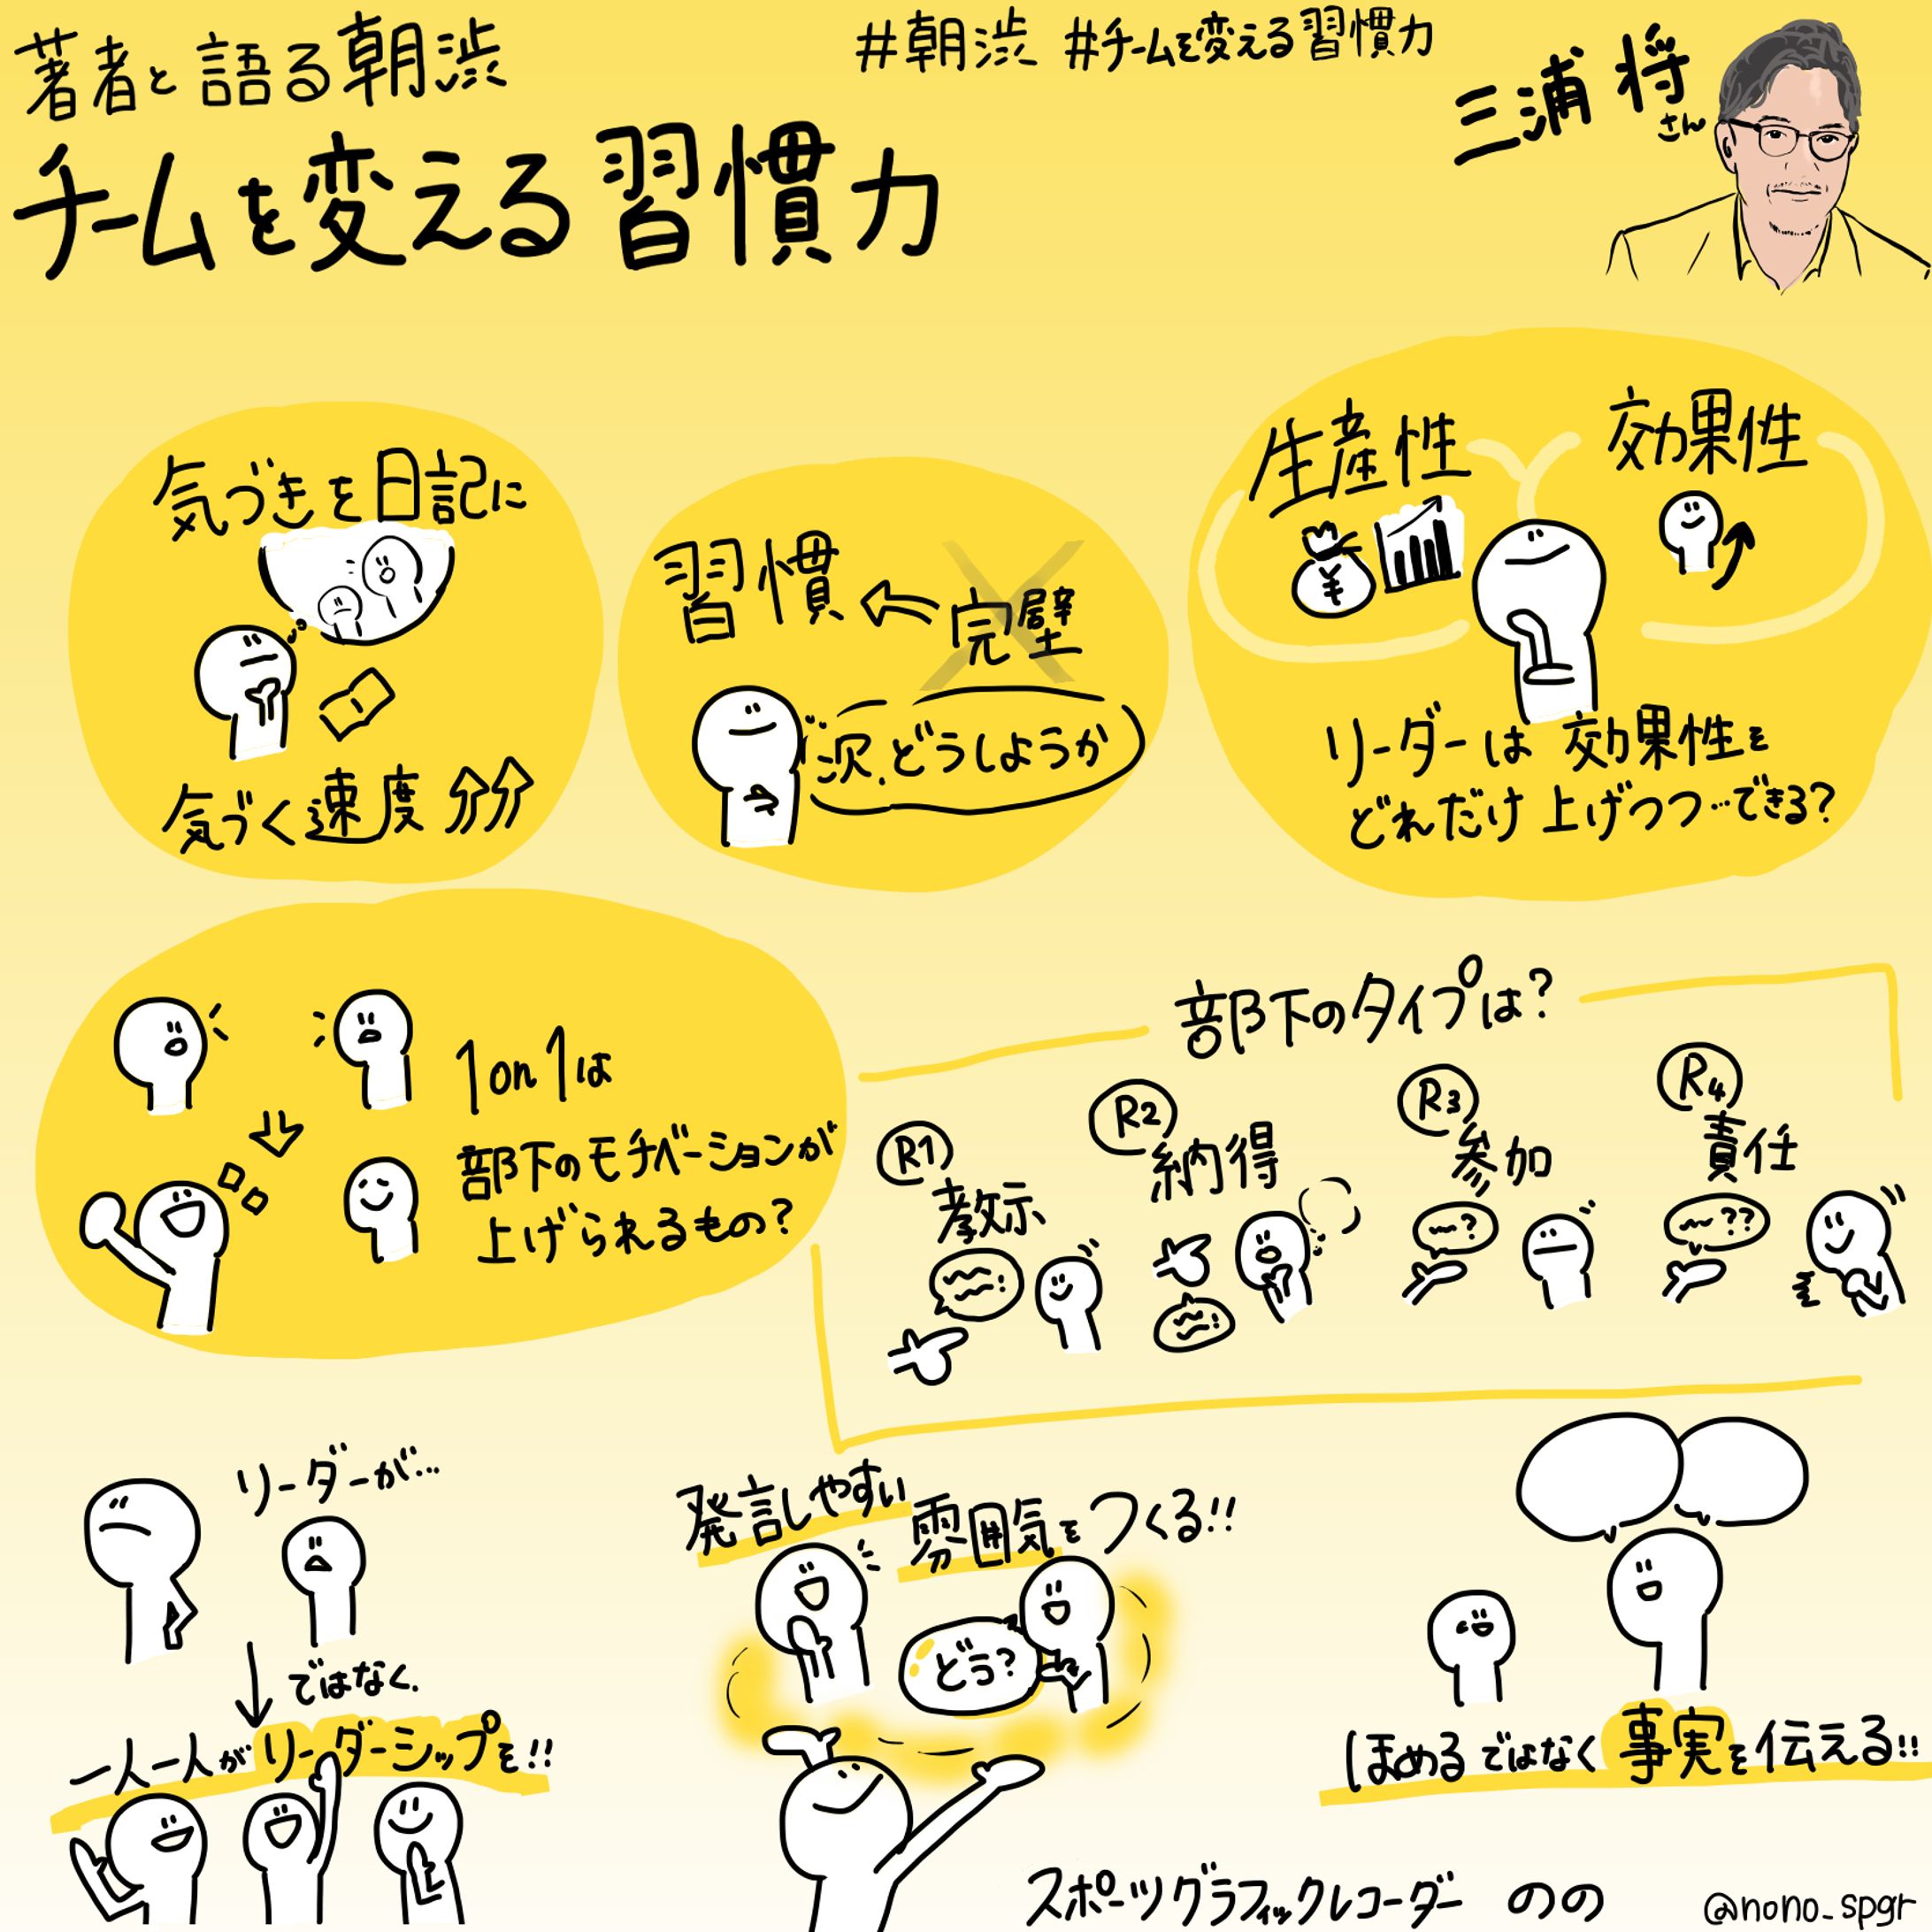 著者と語る朝渋
#朝渋 #チームを変える習慣力
チームを変える習慣力
三浦 将さん
気づきを日記に
気づく速度
習慣
完璧
次、どうしようか
生産性
効果性
¥
リーダーは効果性を
どれだけ上げつつ…できる?
1on1は
部下のモチベーションが
上げられるもの?
部下のタイプは?
R1
教示
R2
納得
R3
参加
?
R4
責任
??
リーダーが…
ではなく、
一人一人がリーダーシップを!!
発言しやすい
雰囲気をつくる!!
どう?
ほめるではなく事実を伝える!!
スポーツグラフィックレコーダー のの
@nono_spgr